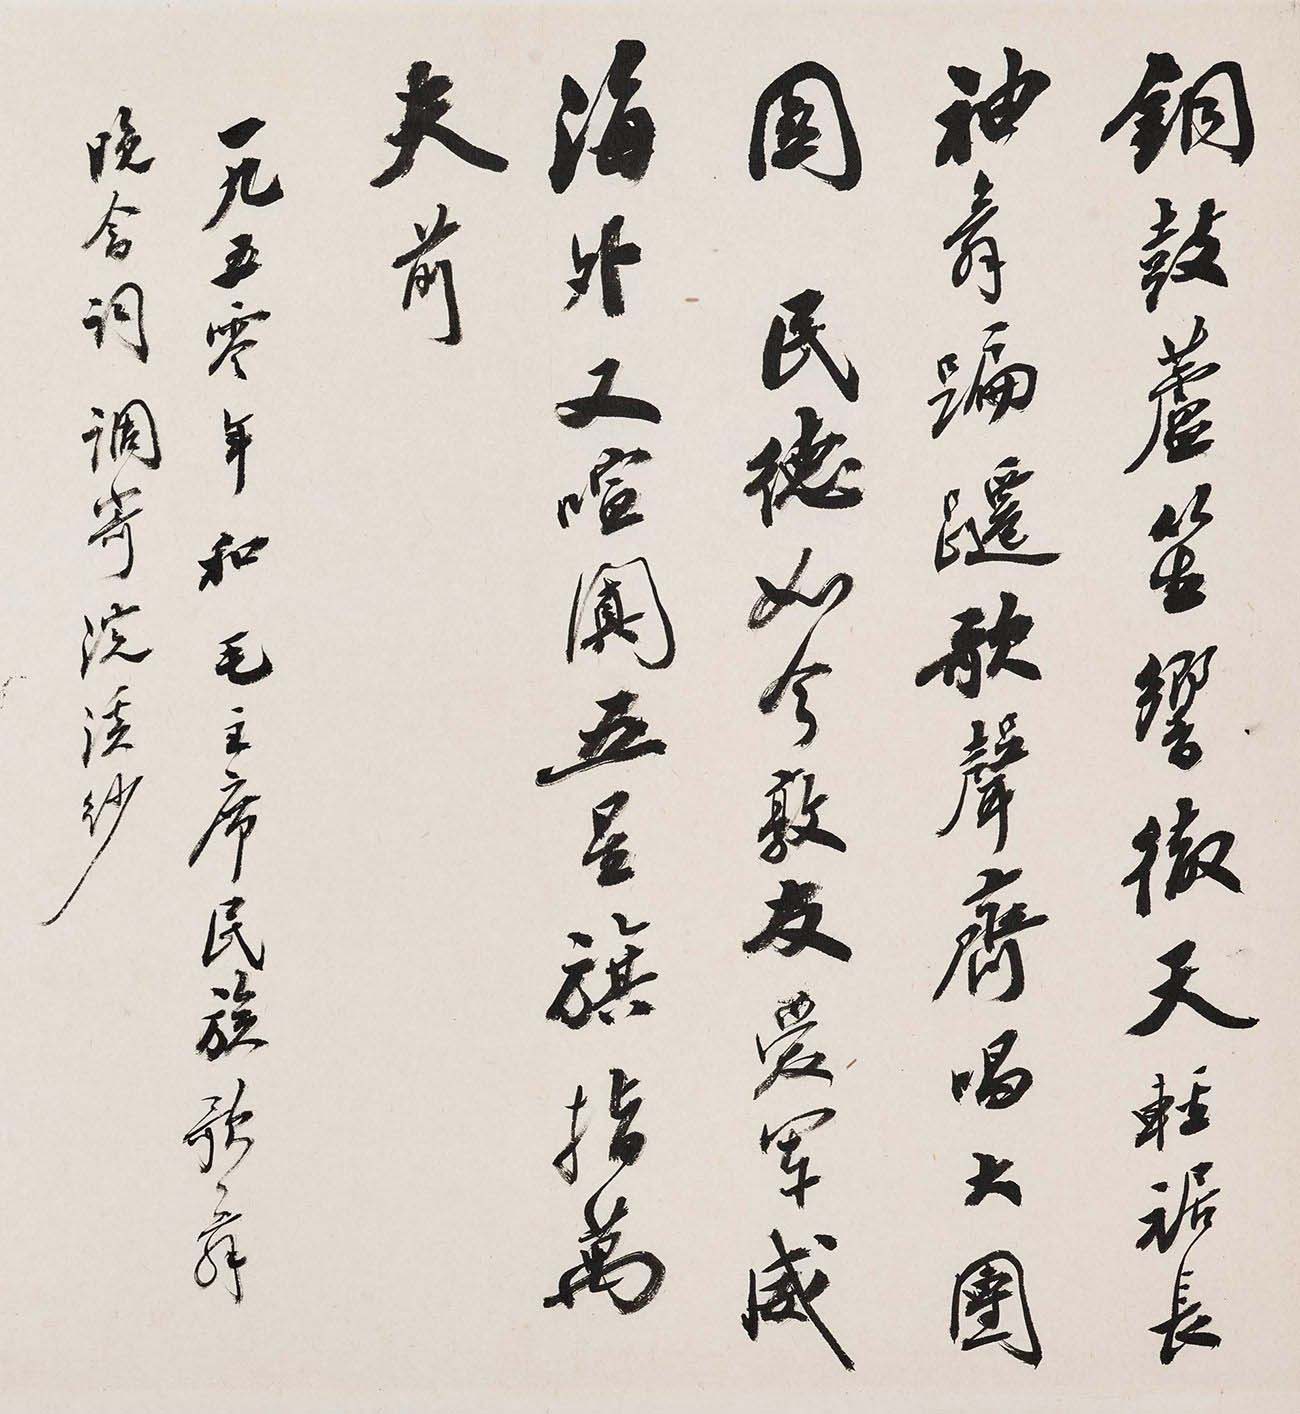 銅鼓蘆笙響徹天輕裾長
袖舞蹁躚歌聲齊唱大團
圓 民德如今敦友愛軍威
海外又喧闐五星旗指萬
夫前
一九五零年和毛主席民族歌舞
晚會詞調寄浣溪紗